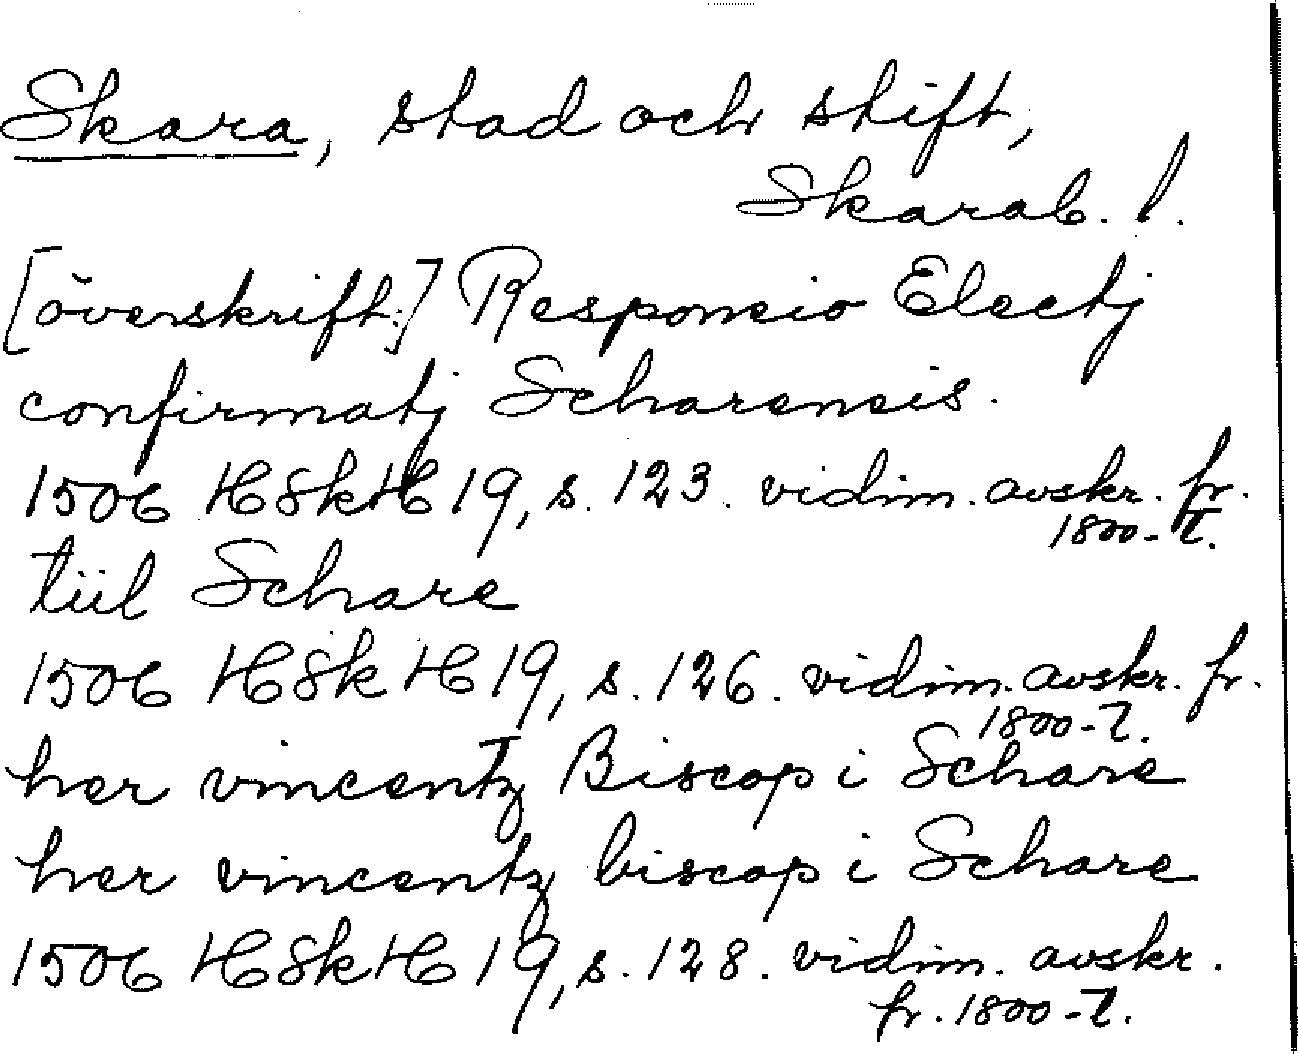 Skara, stad och stift,
Skarab. l.
[överskrift:] Responsio Electj
confirmatj Scharensis.
1506 HSkH 19, s. 123. vidim. avskr. fr.
1800-t.
tiil Schare
1506 HSkH 19, s. 126. vidim. avskr. fr.
1800-t.
her vincentz Biscop i Schare
her vincentz biscop i Schare
1506 HSkH 19, s. 128. vidim. avskr.
fr. 1800-t.